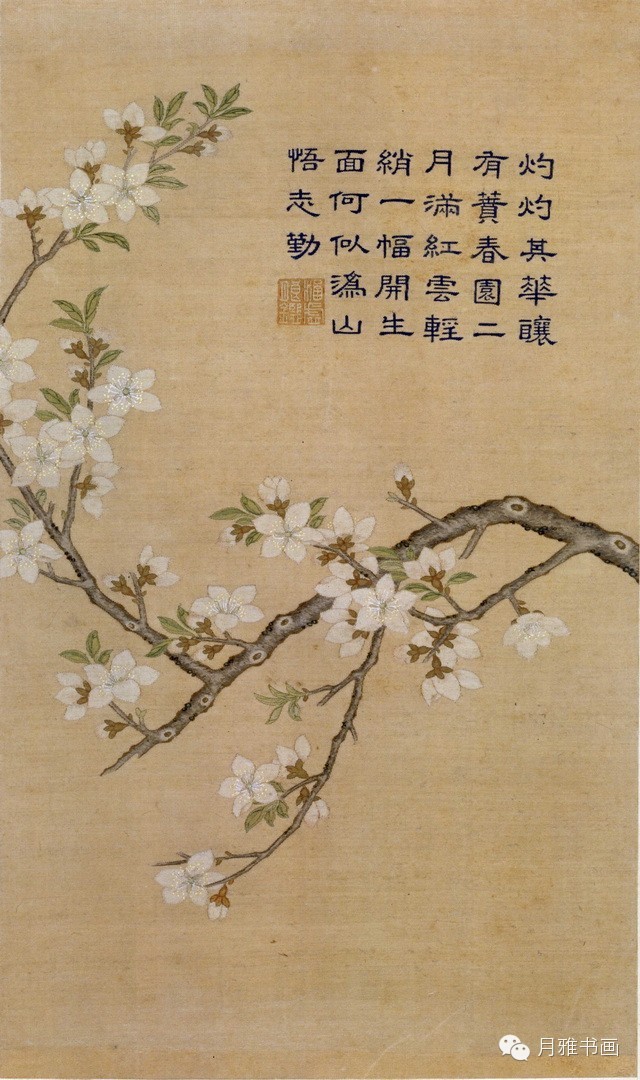 灼灼其華釀
有蕡春園二
月滿紅雲輕
綃一幅開生
面何似溈山
悟志勤
月雅书画